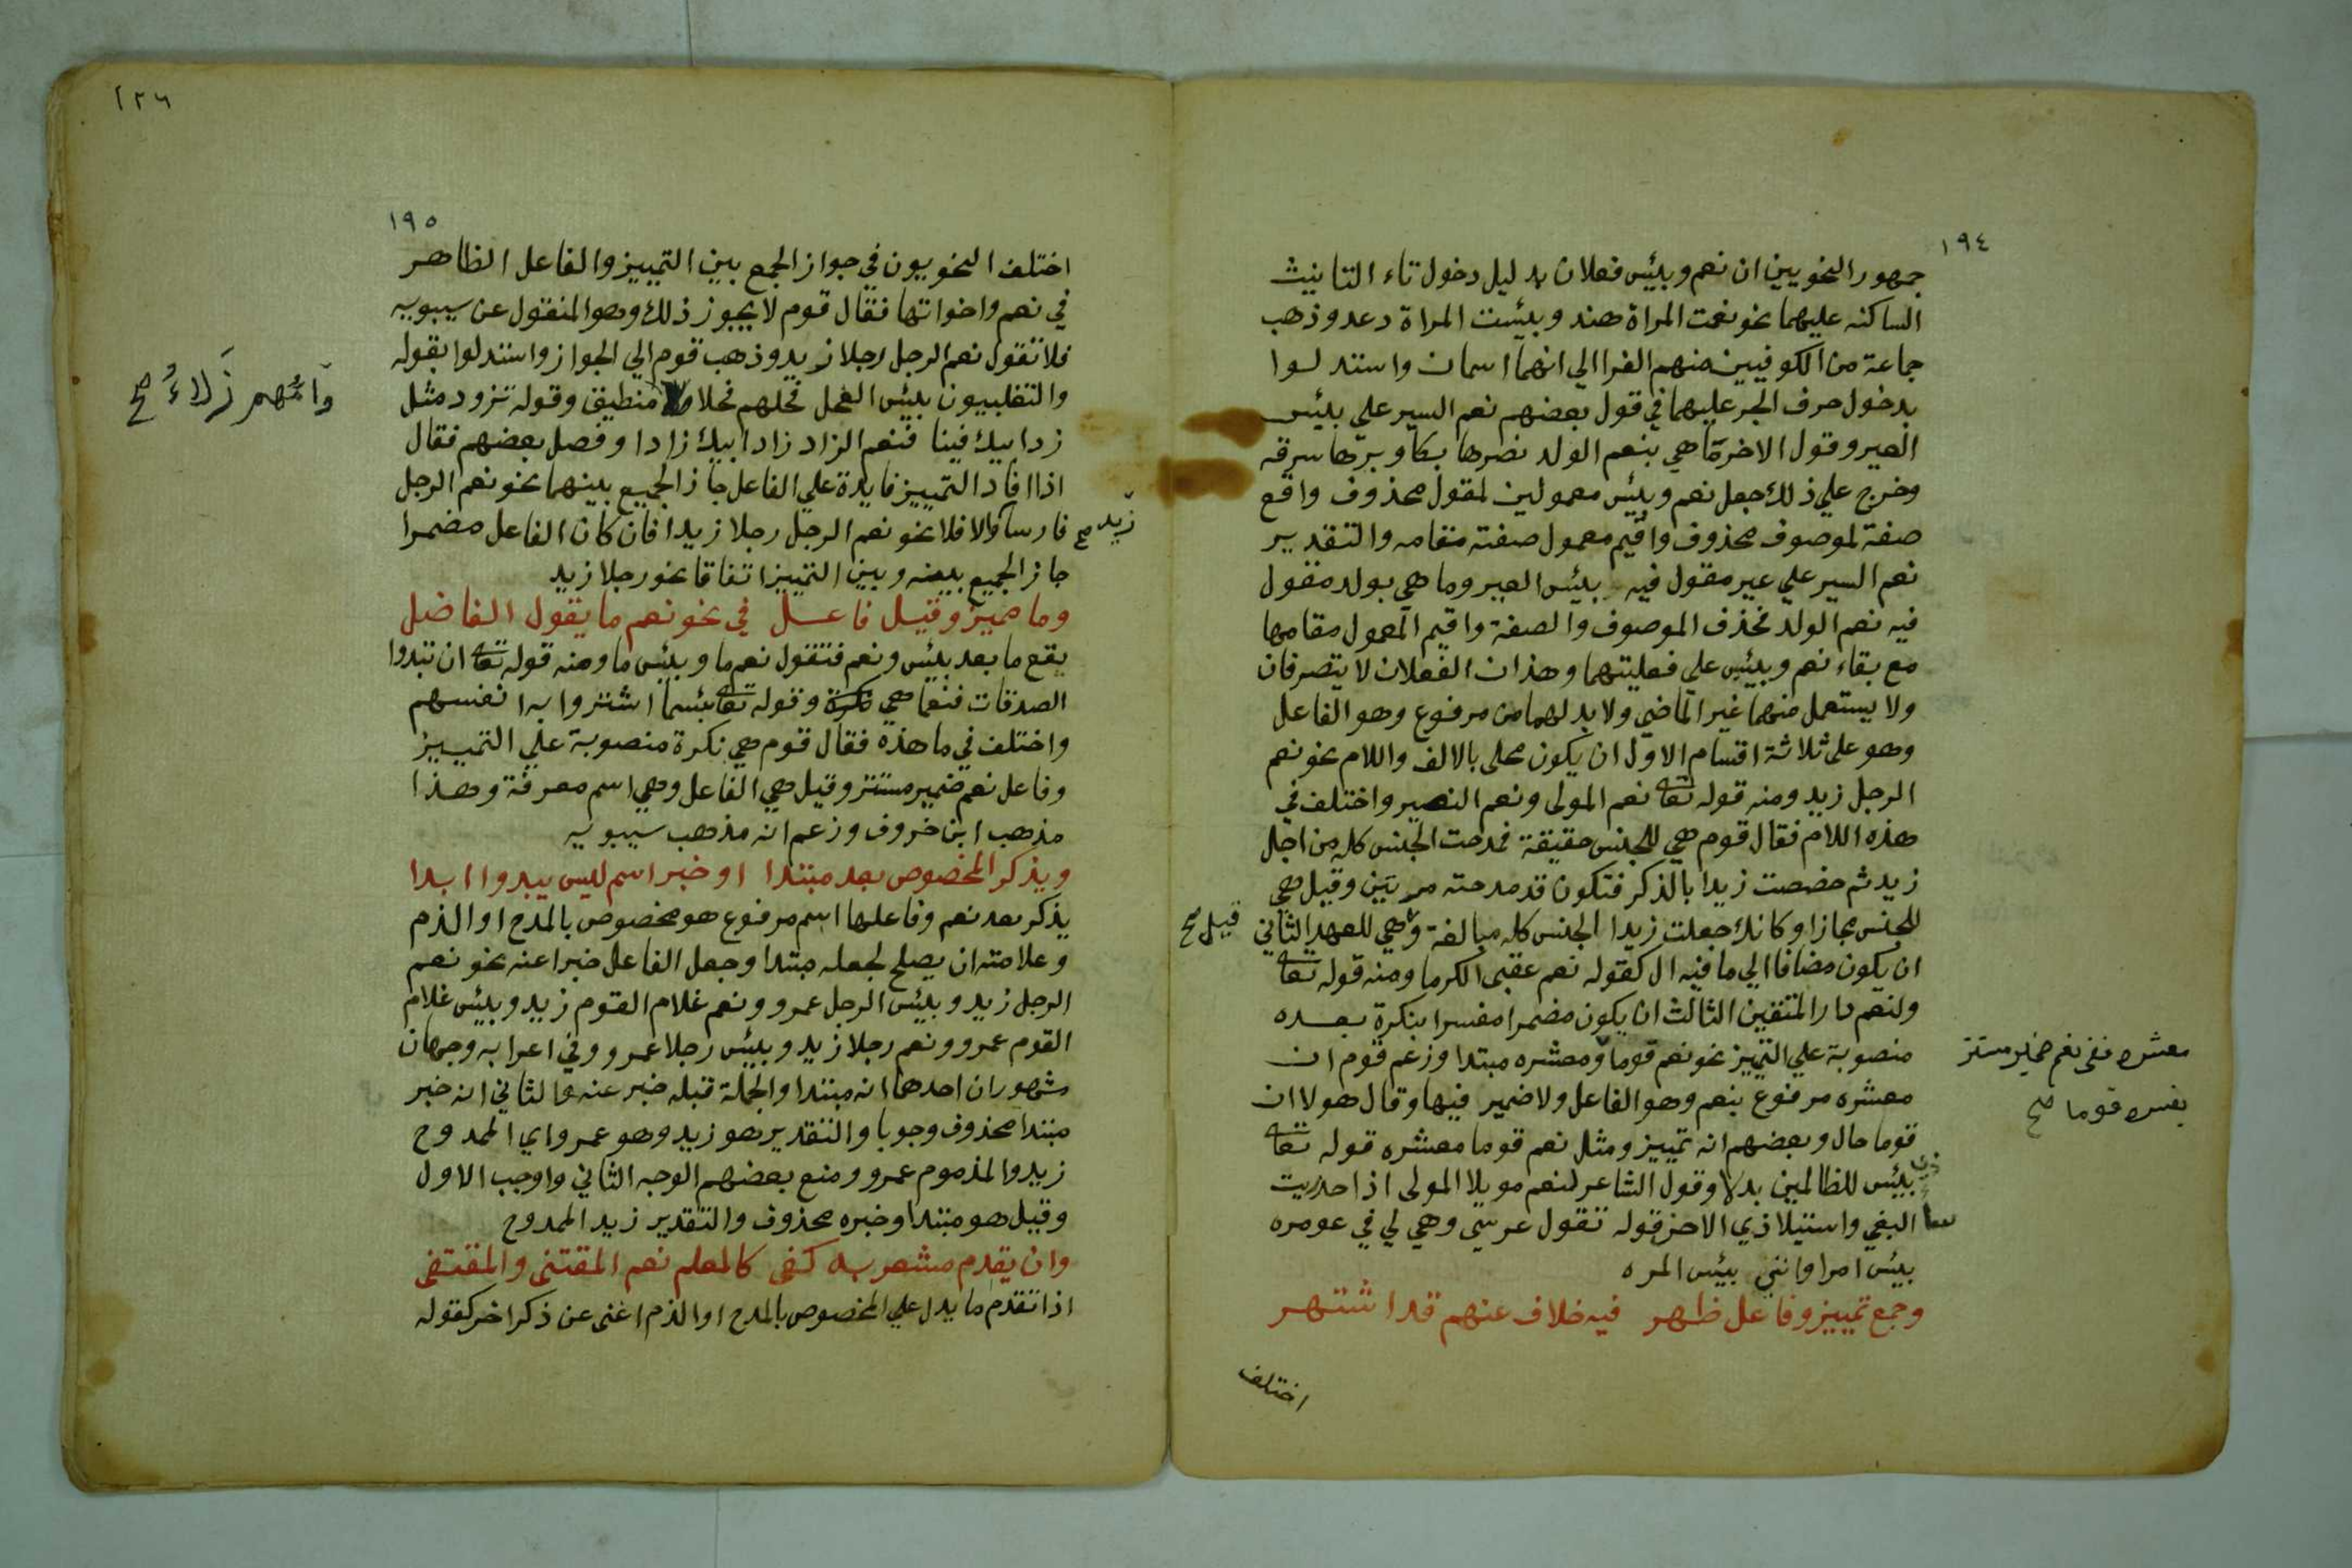 ١٩٤
جمهور النحويين ان نعم وبئس فعلان بدليل دخول تاء التانيث
الساكنه عليهما نحو نعمت المراة هند وبئست المراة دعد وذهب
جماعة من الكوفيين منهم الفرا الي انهما اسمان واستدلوا
بدخول حرف الجر عليهما في قول بعضهم نعم السير علي بئس
العير وقول الاخر ما هي بنعم الولد نصرها بكا وبرها سرقه
وخرج علي ذلك جعل نعم وبئس معمولين لمقول محذوف واقع
صفة لموصوف محذوف واقيم معمول صفته مقامه والتقدير
نعم السير علي عير مقول فيه بئس العير وما هي بولد مقول
فيه نعم الولد فحذف الموصوف والصفة واقيم المعمول مقامها
مع بقاء نعم وبئس علي فعليتهما وهذان الفعلان لا يتصرفان
ولا يستعمل منهما غير الماضي ولا بد لهما من مرفوع وهو الفاعل
وهو على ثلاثة اقسام الاول ان يكون محلى بالالف واللام نحو نعم
الرجل زيد ومنه قوله تعا نعم المولى ونعم النصير واختلف في
هذه اللام فقال قوم هي للجنس حقيقة فمدحت الجنس كله من اجل
زيد ثم خصصت زيدا بالذكر فتكون قد مدحته مرتين وقيل هي
للجنس مجازا وكانك جعلت زيدا الجنس كله مبالغة وهي للعهد الثاني
قيل صح
ان يكون مضافا الي ما فيه ال كقوله نعم عقبى الكرما ومنه قوله تعا
ولنعم دار المتقين الثالث ان يكون مضمرا مفسرا بنكرة بعده
منصوبة علي التمييز نحو نعم قوما ومعشره مبتدا وزعم قوم ان
معشره ففى نعم ضمير مستتر
يفسره قوما صح
معشره مرفوع بنعم وهو الفاعل ولا ضمير فيها وقال هولا ان
قوما حال وبعضهم انه تمييز ومثل نعم قوما معشره قوله تعا
بئس للظالمين بدلا وقول الشاعر لنعم مويلا المولى اذا حذريت
البغي واستيلا ذي الاحن قوله تقول عرسي وهي لي في عومره
بئس امرا وانني بئس المره
وجمع تمييز وفاعل ظهر فيه خلاف عنهم قد اشتهر
اختلف
١٢٦
١٩٥
اختلف النحويون في جواز الجمع بين التمييز والفاعل الظاهر
في نعم واخواتها فقال قوم لا يجوز ذلك وهو المنقول عن سيبويه
فلا تقول نعم الرجل رجلا زيد وذهب قوم الي الجواز واستدلوا بقوله
والتغلبيون بئس الفحل فحلهم فحلا منطيق وقوله تزود مثل
وَامُّهم زَلاءُ صح
زاد ابيك فينا فنعم الزاد زاد ابيك زادا وفصل بعضهم فقال
اذا افاد التمييز فايدة علي الفاعل جاز الجمع بينهما نحو نعم الرجل
فارسا والا فلا نحو نعم الرجل رجلا زيدا فان كان الفاعل مضمرا
زيد صح
جاز الجمع بينه وبين التمييز اتفاقا نحو رجلا زيد
وما مميز وقيل فاعل في نحو نعم ما يقول الفاضل
يقع ما بعد بئس ونعم فتقول نعم ما وبئس ما ومنه قوله تعا ان تبدوا
الصدقات فنعما هي وقوله تعا بئسما اشتروا به انفسهم
واختلف في ما هذه فقال قوم هي نكرة منصوبة علي التمييز
وفاعل نعم ضمير مستتر وقيل هي الفاعل وهي اسم معرفة وهذا
مذهب ابن خروف وزعم انه مذهب سيبويه
ويذكر المخصوص بعد مبتدا او خبر اسم ليس يبدوا ابدا
يذكر بعد نعم وفاعلها اسم مرفوع هو مخصوص بالمدح او الذم
وعلامته ان يصلح لجعله مبتدا وجعل الفاعل خبرا عنه نحو نعم
الرجل زيد وبئس الرجل عمرو ونعم غلام القوم زيد وبئس غلام
القوم عمرو ونعم رجلا زيد وبئس رجلا عمرو وفي اعرابه وجهان
مشهوران احدهما انه مبتدا والجملة قبله خبر عنه والثاني انه خبر
مبتدا محذوف وجوبا والتقدير هو زيد وهو عمرو اي الممدوح
زيد والمذموم عمرو ومنع بعضهم الوجه الثاني واوجب الاول
وقيل هو مبتدا وخبره محذوف والتقدير زيد الممدوح
وان يقدم مشعر به كفى كالعلم نعم المقتنى والمقتفى
اذا تقدم ما يدل علي المخصوص بالمدح او الذم اغنى عن ذكر اخر كقوله